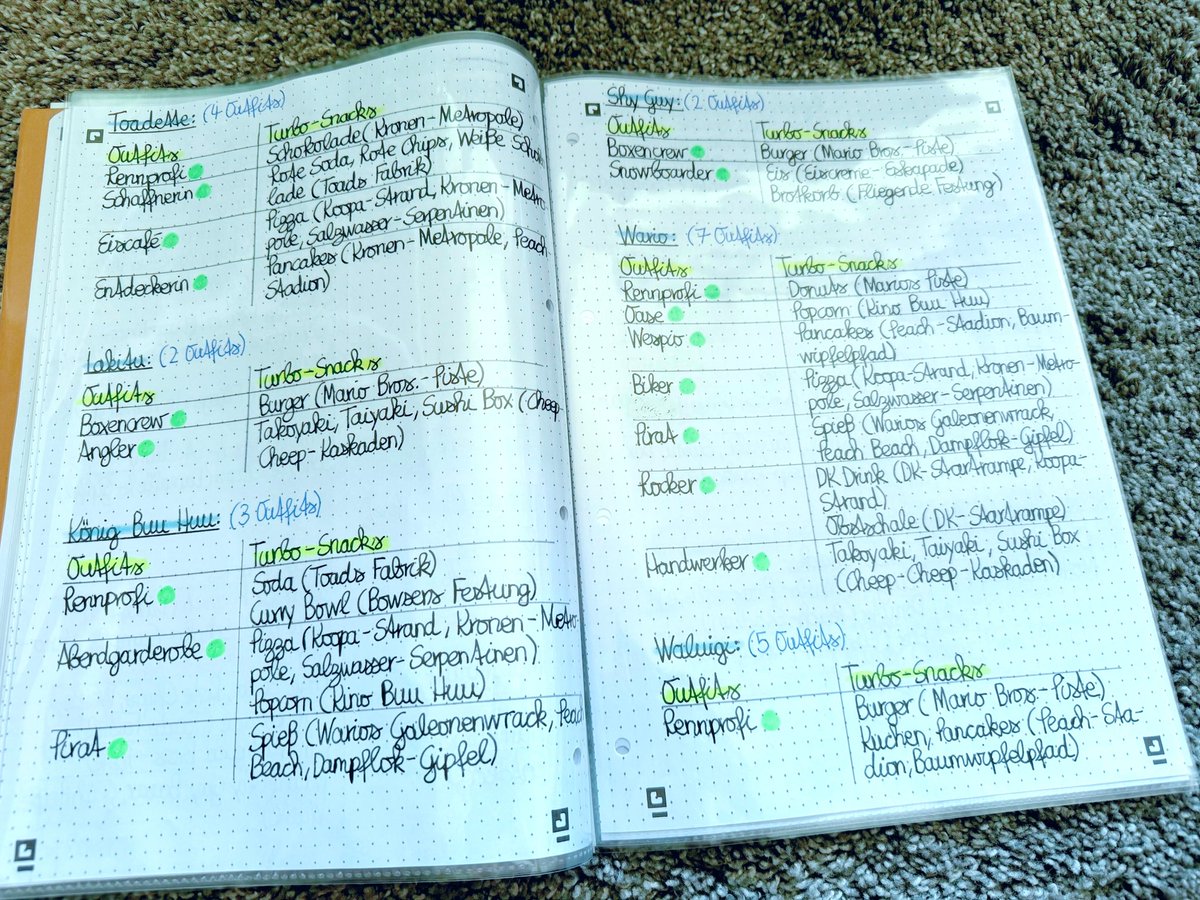 Toadette: (4 Outfits)
Outfits Turbo-Snacks
Rennprofi Schokolade (Kronen-Metropole)
Schaffnerin Rote Soda, Rote Chips, Weiße Schoko
lade (Toads Fabrik)
Eiscafé Pizza (Koopa-Strand, Kronen-Metro
pole, Salzwasser-Serpentinen)
Entdeckerin Pancakes (Kronen-Metropole, Peach-
Stadion)
Lakitu: (2 Outfits)
Outfits Turbo-Snacks
Boxencrew Burger (Mario Bros.-Piste)
Angler Takoyaki, Taiyaki, Sushi Box (Cheep-
Cheep-Kaskaden)
König Buu Huu: (3 Outfits)
Outfits Turbo-Snacks
Rennprofi Soda (Toads Fabrik)
Curry Bowl (Bowsers Festung)
Abendgarderobe Pizza (Koopa-Strand, Kronen-Metro-
pole, Salzwasser-Serpentinen)
Popcorn (Kino Buu Huu)
Pirat Spieß (Warios Galeonenwrack, Peach
Beach, Dampflok-Gipfel)
Shy Guy: (2 Outfits)
Outfits Turbo-Snacks
Boxencrew Burger (Mario Bros.-Piste)
Snowboarder Eis (Eiscreme-Eskapade)
Brotkorb (Fliegende Festung)
Wario: (7 Outfits)
Outfits Turbo-Snacks
Rennprofi Donuts (Marios Piste)
Oase Popcorn (Kino Buu Huu)
Wespio Pancakes (Peach-Stadion, Baum-
wipfelpfad)
Biker Pizza (Koopa-Strand, Kronen-Metro-
pole, Salzwasser-Serpentinen)
Pirat Spieß (Warios Galeonenwrack,
Peach Beach, Dampflok-Gipfel)
Rocker DK Drink (DK-Startrampe, Koopa-
Strand)
Obstschale (DK-Startrampe)
Handwerker Takoyaki, Taiyaki, Sushi Box
(Cheep-Cheep-Kaskaden)
Waluigi: (5 Outfits)
Outfits Turbo-Snacks
Rennprofi Burger (Mario Bros-Piste)
Kuchen, Pancakes (Peach-Sta-
dion, Baumwipfelpfad)